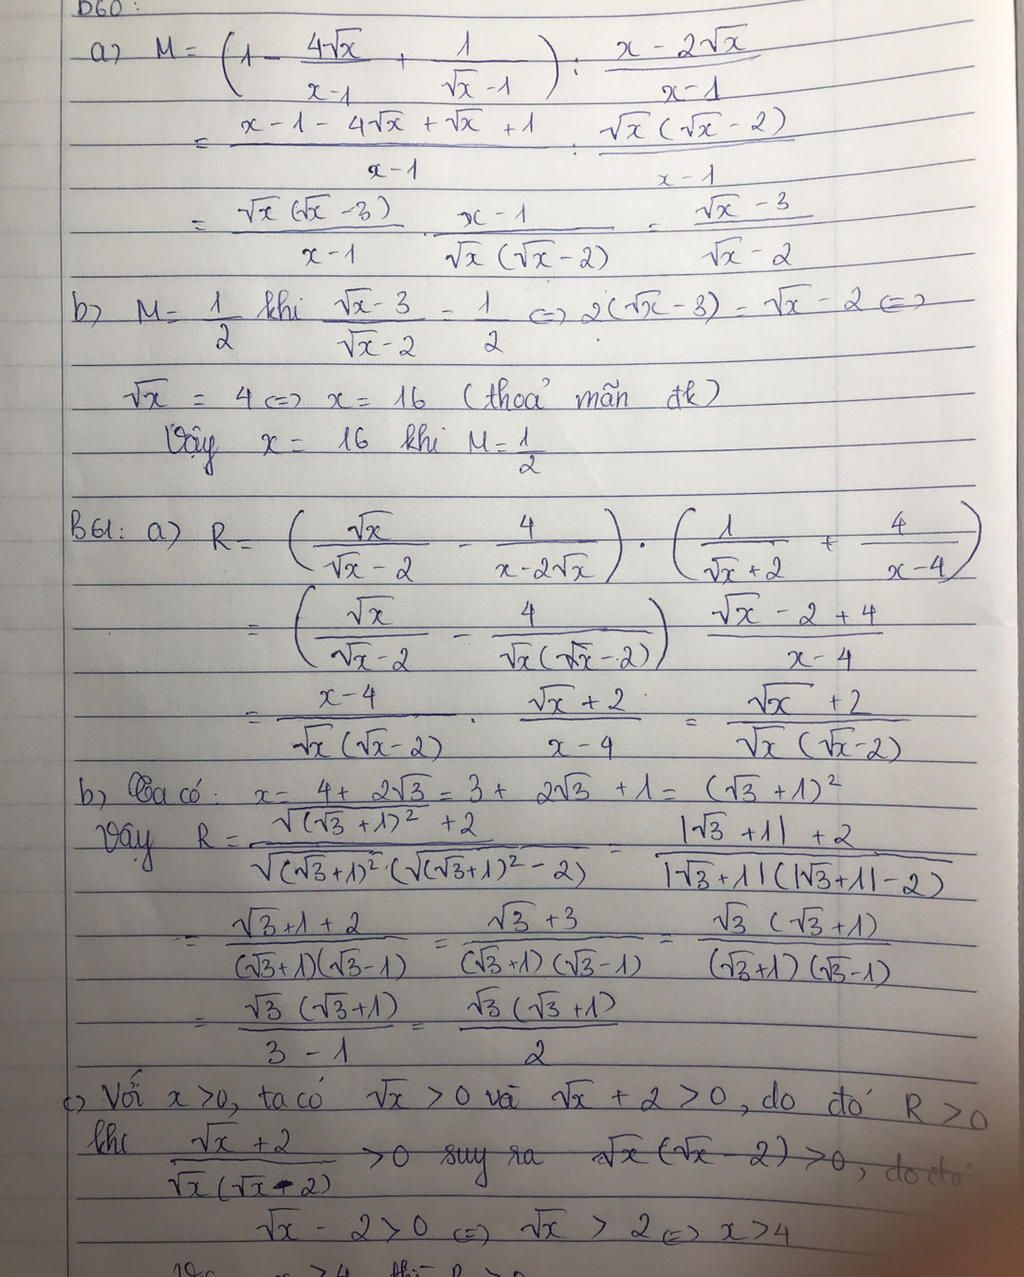 B60:
a) M = (1 - 4√x/(x-1) + 1/(√x-1)) : (x-2√x)/(x-1)
= (x-1-4√x+√x+1)/(x-1) : √x(√x-2)/(x-1)
= √x(√x-3)/(x-1) . (x-1)/(√x(√x-2)) = (√x-3)/(√x-2)
b) M = 1/2 khi (√x-3)/(√x-2) = 1/2 <=> 2(√x-3) = √x-2 <=>
√x = 4 <=> x = 16 (thoả mãn đk)
Vậy x = 16 khi M = 1/2
B61: a) R = (√x/(√x-2) - 4/(x-2√x)) . (1/(√x+2) + 4/(x-4))
= (√x/(√x-2) - 4/(√x(√x-2))) (√x-2+4)/(x-4)
= (x-4)/(√x(√x-2)) . (√x+2)/(x-4) = (√x+2)/(√x(√x-2))
b) Ta có: x = 4+2√3 = 3+2√3+1 = (√3+1)²
Vậy R = (√(√3+1)²+2)/(√(√3+1)².(√(√3+1)²-2)) = (|√3+1|+2)/(|√3+1|(|√3+1|-2))
= (√3+1+2)/((√3+1)(√3-1)) = (√3+3)/((√3+1)(√3-1)) = √3(√3+1)/((√3+1)(√3-1))
= √3(√3+1)/(3-1) = √3(√3+1)/2
c) Với x>0, ta có √x>0 và √x+2>0, do đó R>0
khi (√x+2)/(√x(√x-2)) >0 suy ra √x(√x-2)>0, do đó
√x-2>0 <=> √x>2 <=> x>4